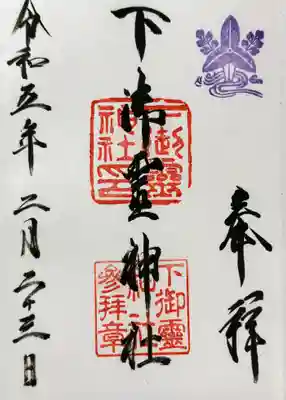 奉拝
下御霊神社
下御靈神社之印
下御靈
参拜章
令和五年二月二十三日